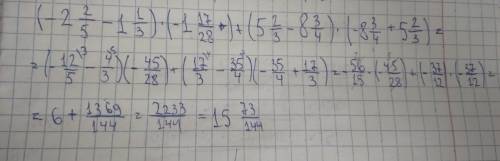 (-2 2/5 - 1 1/3) · (-1 17/28) + (5 2/3 - 8 3/4) · (-8 3/4 + 5 2/3) =
= (-12/5 - 4/3)(-45/28) + (17/3 - 35/4)(-35/4 + 17/3) = -56/15 · (-45/28) + (-37/12) · (-37/12) =
= 6 + 1369/144 = 2233/144 = 15 73/144